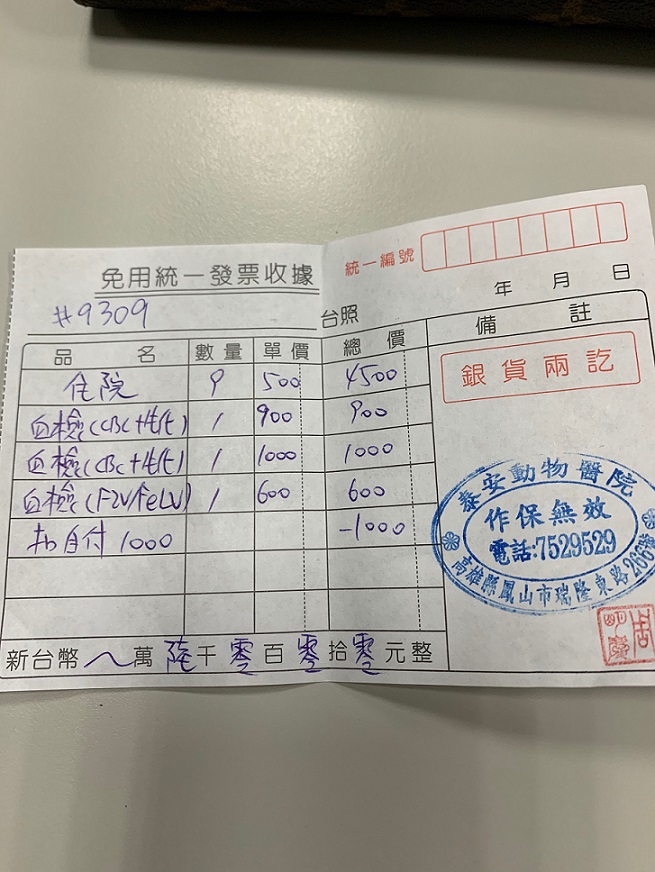 統一編號
免用統一發票收據
年 月 日
#9309 台照
品 名 數量 單價 總價 備 註
住院 9 500 4500
血檢(CBC+生化) 1 900 900
血檢(CBC+生化) 1 1000 1000
血檢(FIV/FeLV) 1 600 600
扣自付1000 -1000
銀貨兩訖
泰安動物醫院
作保無效
電話:7529529
高雄縣鳳山市瑞隆東路266號
新台幣 萬陸千零百零拾零元整